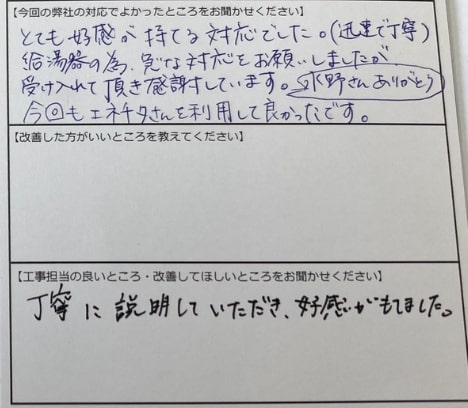 【今回の弊社の対応でよかったところをお聞かせください】
とても好感が持てる対応でした。(迅速で丁寧)
給湯器の為、急な対応をお願いしましたが
受け入れて頂き感謝しています。水野さんありがとう
今回もエネチタさんを利用して良かったです。
【改善した方がいいところを教えてください】
【工事担当の良いところ・改善してほしいところをお聞かせください】
丁寧に説明していただき、好感がもてました。